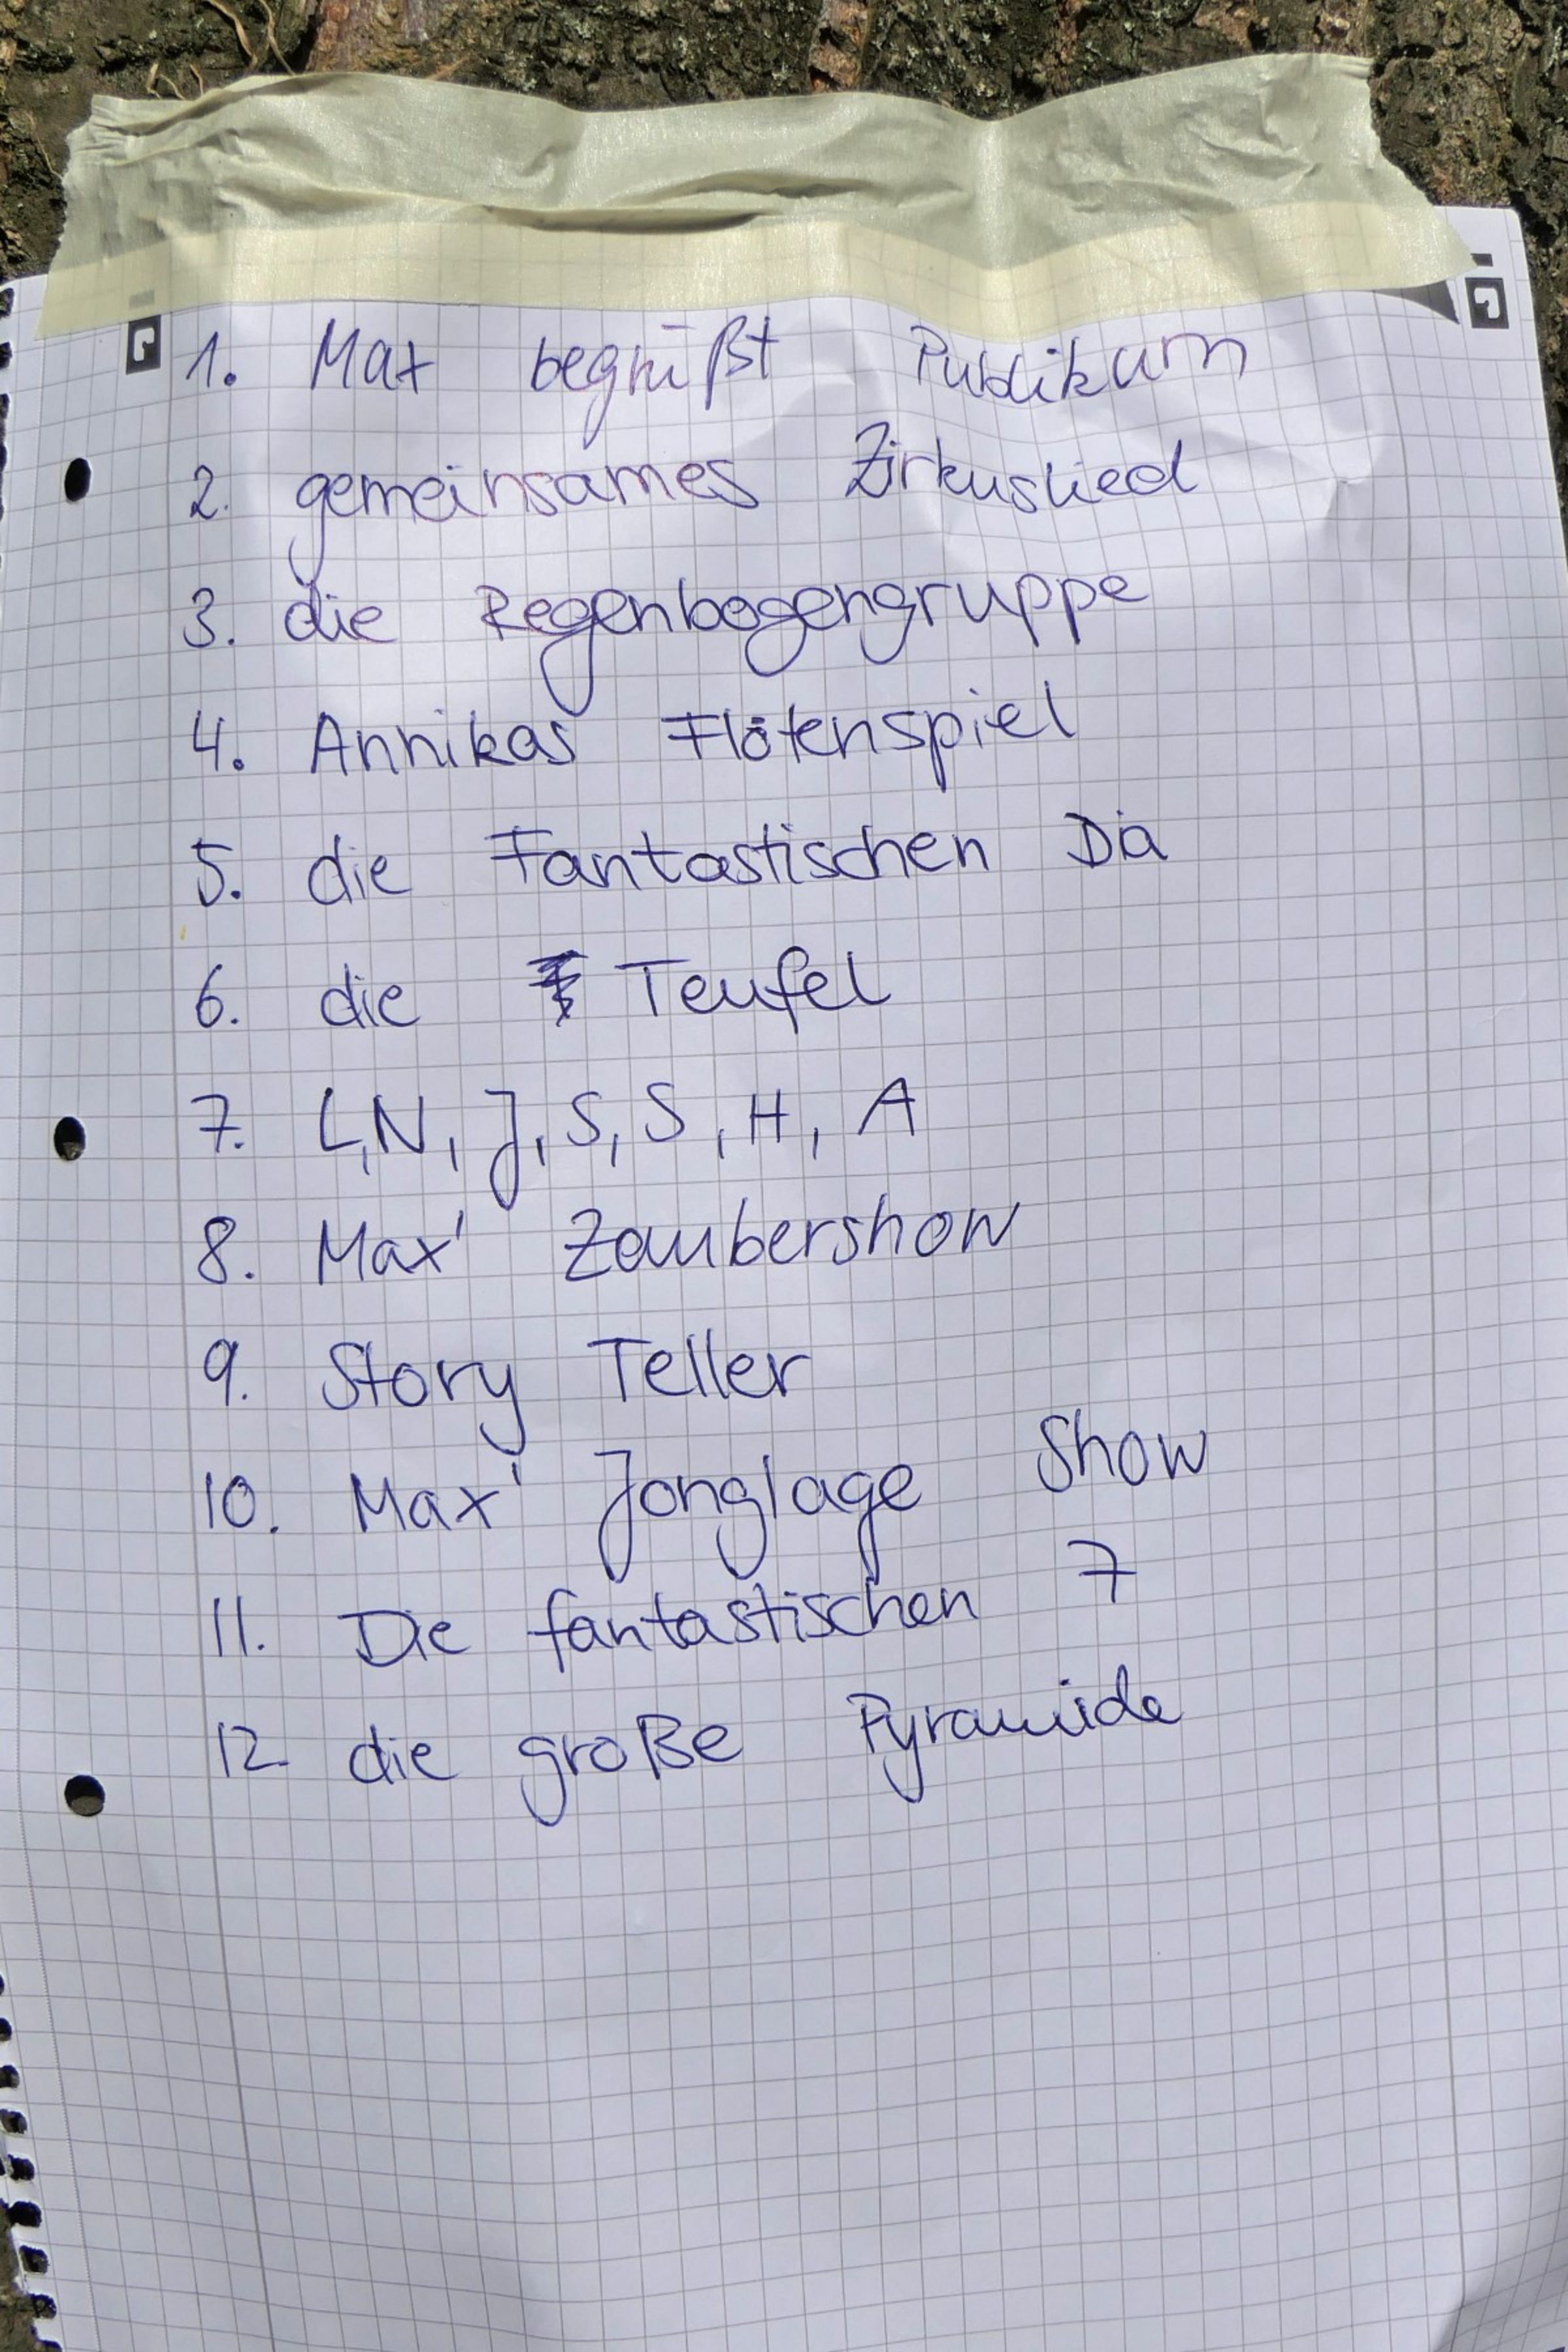 1. Max begrüßt Publikum
2. gemeinsames Zirkuslied
3. die Regenbogengruppe
4. Annikas Flötenspiel
5. die Fantastischen Dia
6. die Teufel
7. L, N, J, S, S, H, A
8. Max' Zaubershow
9. Story Teller
10. Max' Jonglage Show
11. Die fantastischen 7
12. die große Pyramide